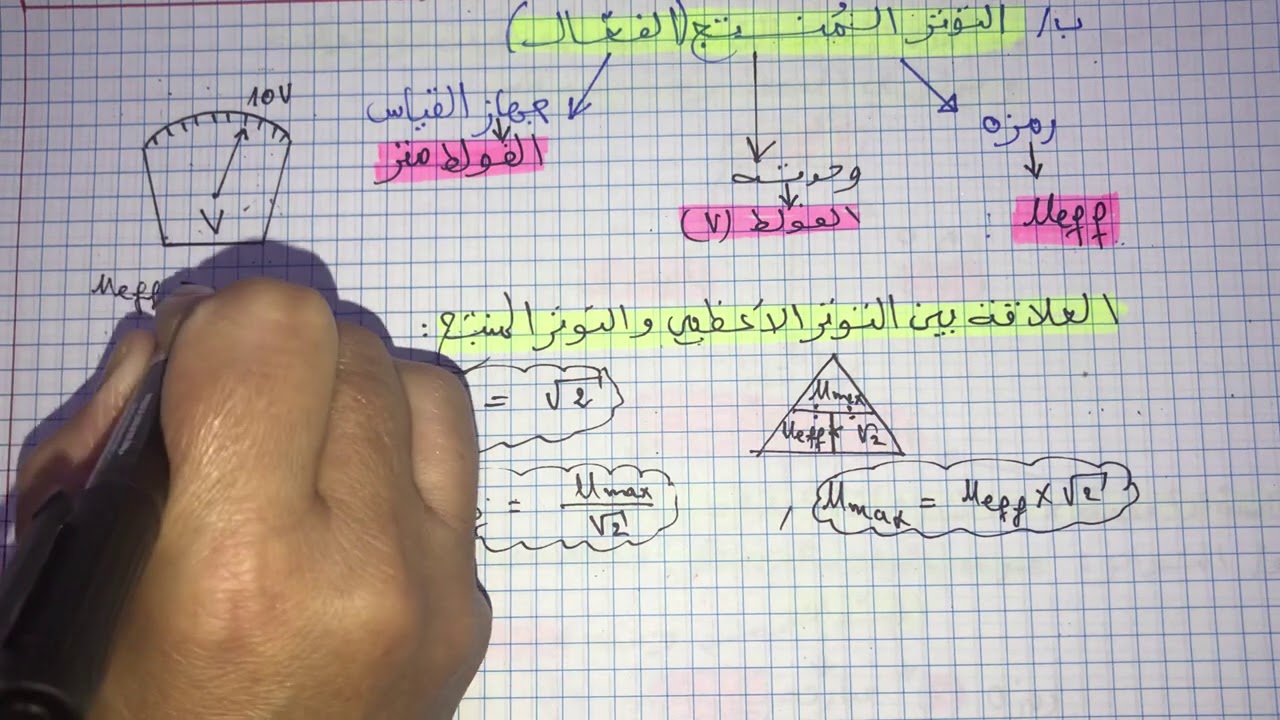 ب/ التوتر المُنتج (الفعّال)
10V
جهاز القياس
رمزه
الفولط متر
وحدته
V
الفولط (V)
Ueff
Ueff =
العلاقة بين التوتر الأعظمي والتوتر المنتج :
= √2
Umax
Ueff × √2
= Umax / √2
, Umax = Ueff × √2